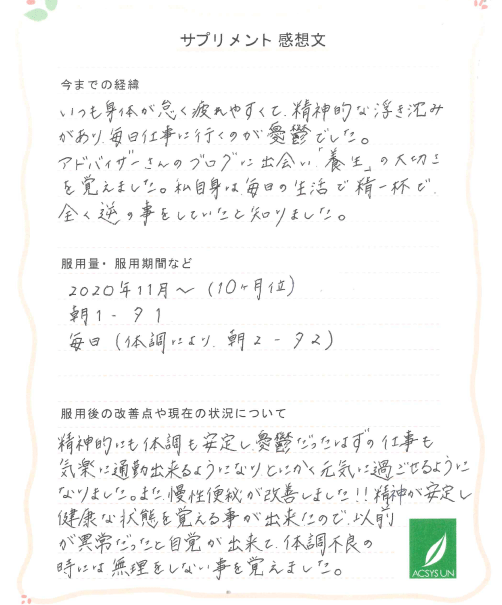 サプリメント 感想文
今までの経緯
いつも身体が怠く疲れやすくて、精神的な浮き沈み
があり、毎日仕事に行くのが憂鬱でした。
アドバイザーさんのブログに出会い「養生」の大切さ
を覚えました。私自身は、毎日の生活で精一杯で、
全く逆の事をしていたと知りました。
服用量・服用期間など
2020年11月〜 (10ヶ月位)
朝1 - 夕1
毎日 (体調により、朝2 - 夕2)
服用後の改善点や現在の状況について
精神的にも体調も安定し、憂鬱だったはずの仕事も
気楽に通勤出来るようになり、とにかく元気に過ごせるように
なりました。また、慢性便秘が改善しました!!精神が安定し
健康な状態を覚える事が出来たので、以前
が異常だったと自覚が出来て、体調不良の
時には無理をしない事を覚えました。
ACSYSUN